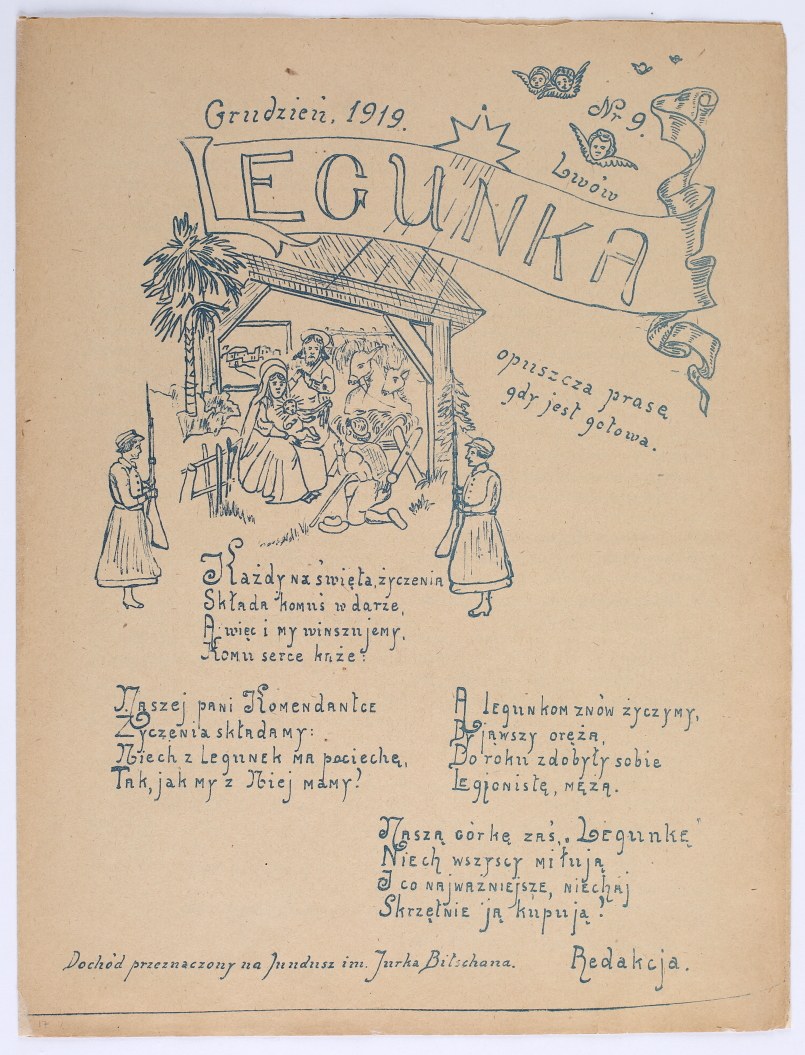 Grudzień, 1919.
Nr 9.
Lwów
LEGUNKA
opuszcza prasę
gdy jest gotowa.
Każdy na święta, życzenia
Składa komuś w darze,
A więc i my winszujemy,
Komu serce każe:
Naszej pani Komendantce
Życzenia składamy:
Niech z Legunek ma pociechę,
Tak, jak my z Niej mamy!
A legunkom znów życzymy,
By jąwszy oręża,
Do roku zdobyły sobie
Legjonistę, męża.
Naszą córkę zaś, „Legunkę"
Niech wszyscy miłują
I co najważniejsze, niechaj
Skrzętnie ją kupują!
Redakcja.
Dochód przeznaczony na Fundusz im. Jurka Bitschana.